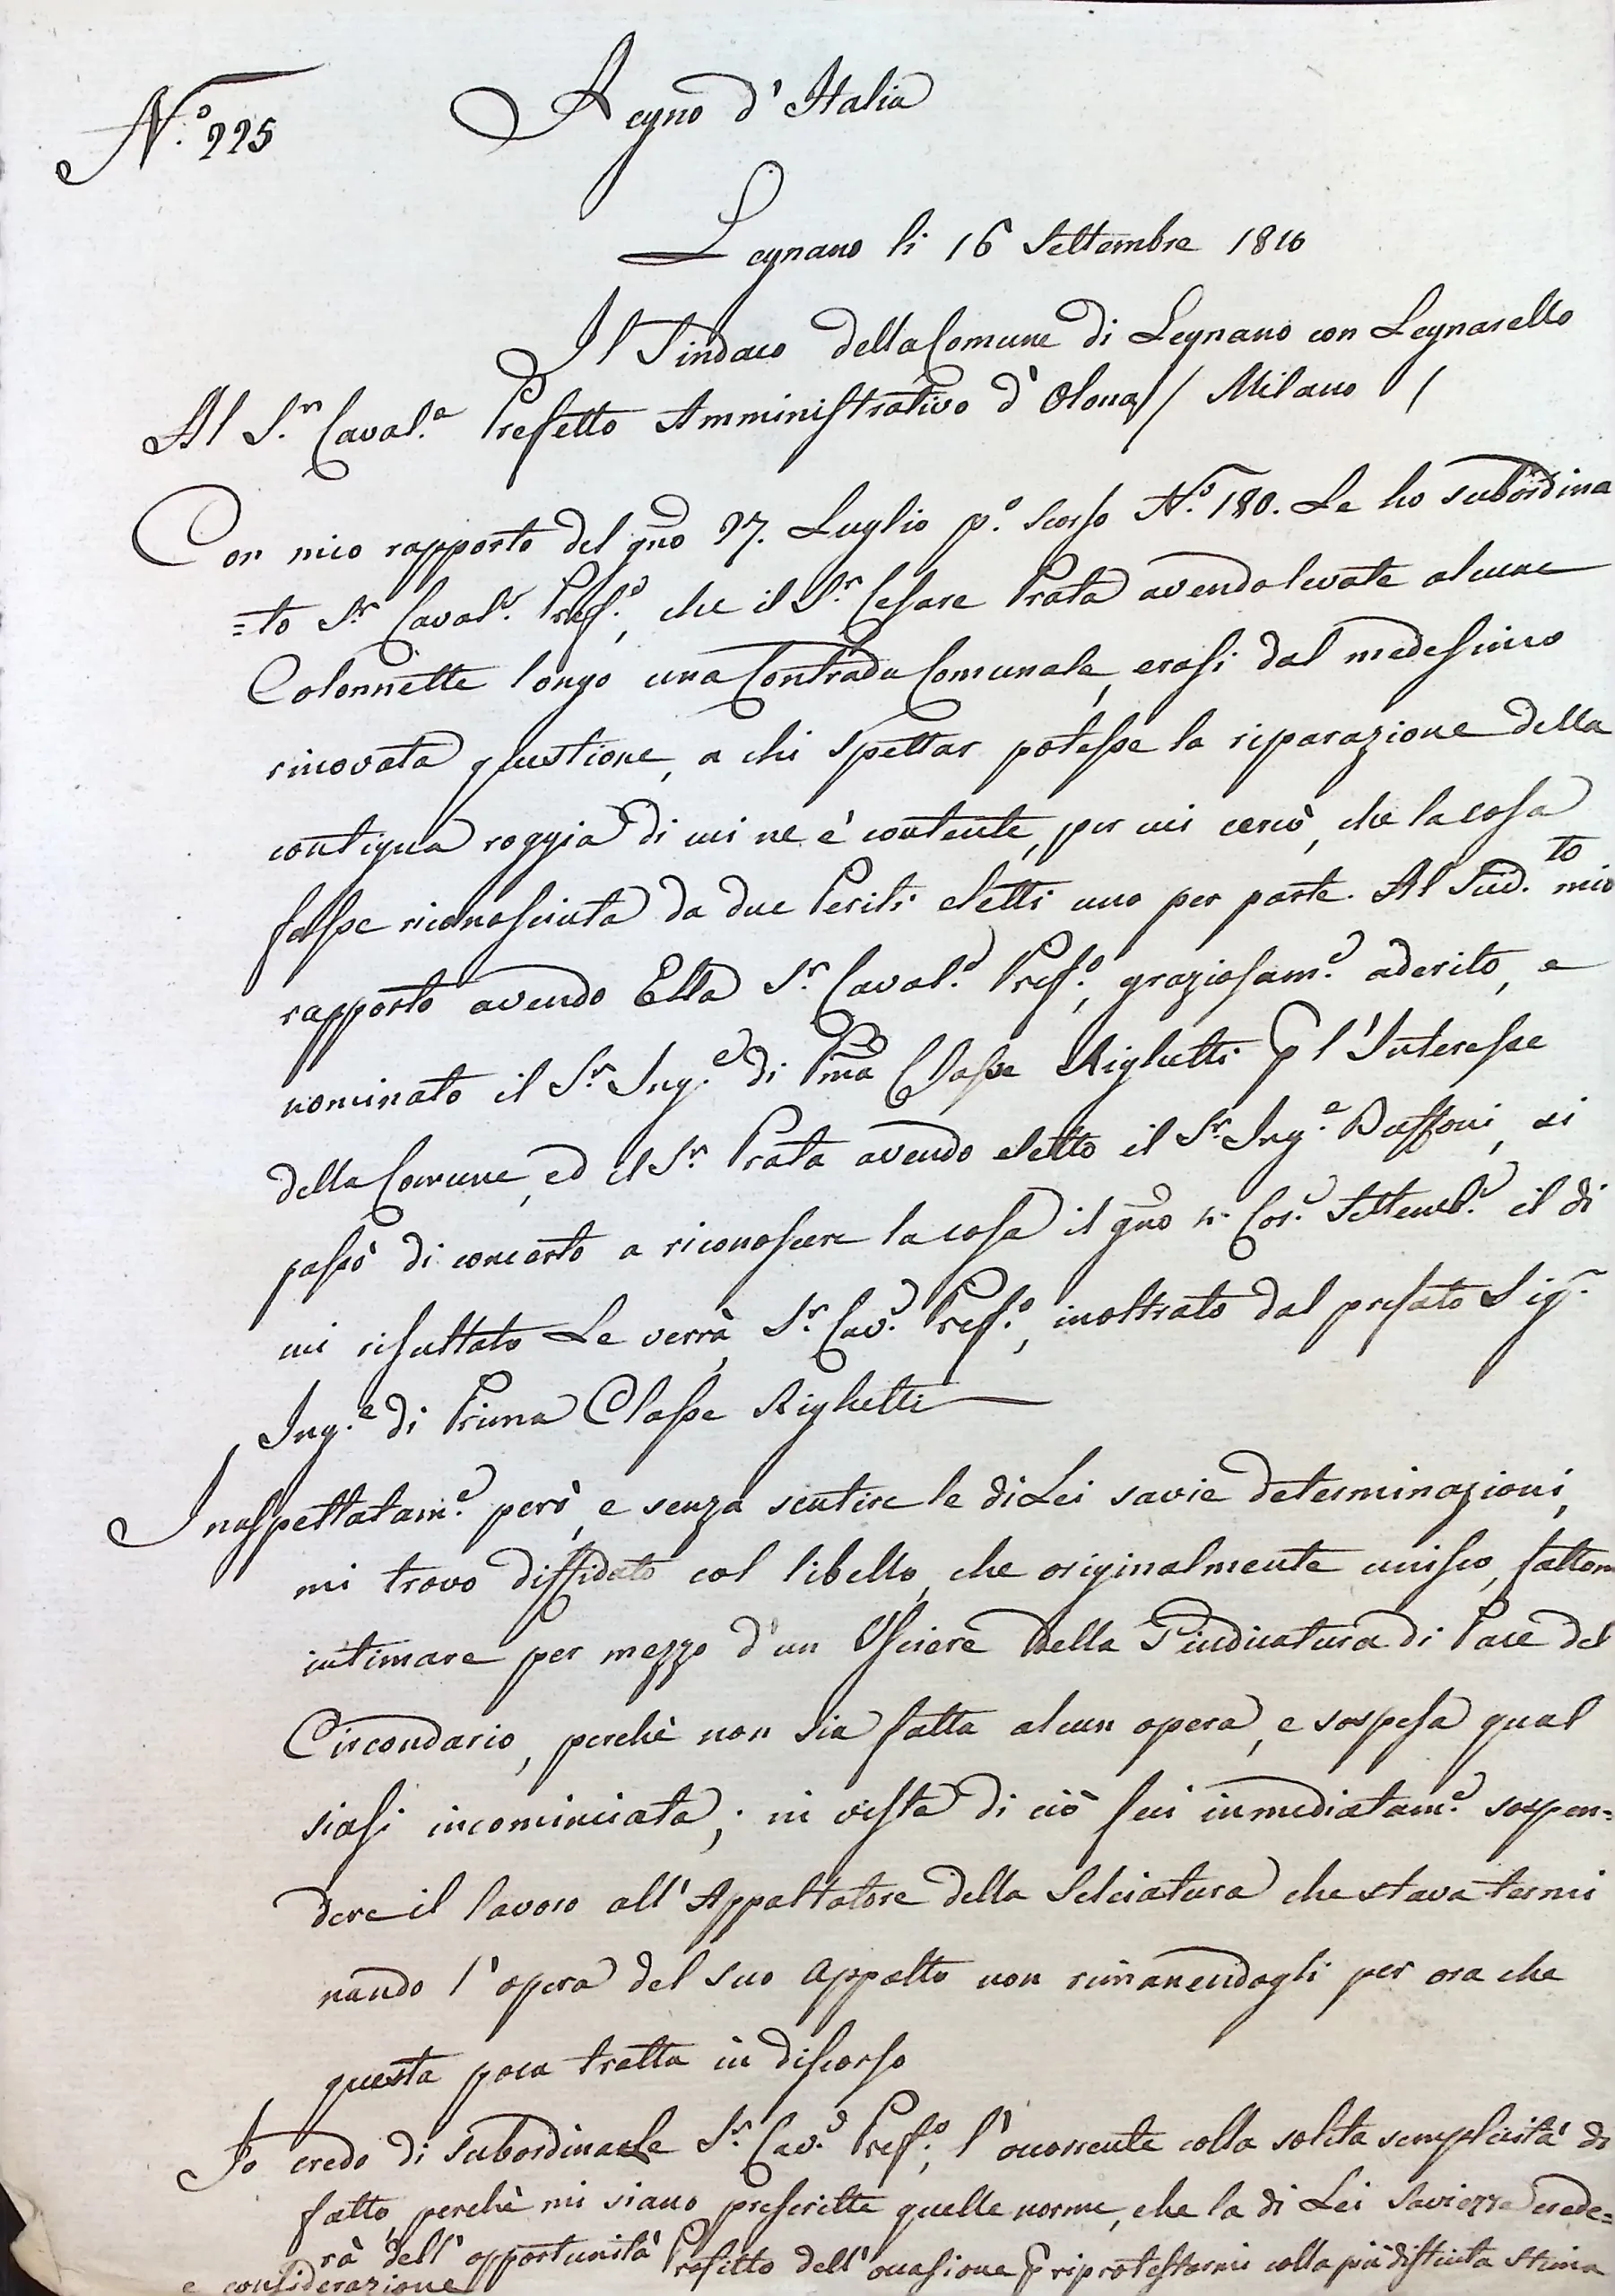 N.º 225
Regno d'Italia
Legnano li 16 Settembre 1810
Il Sindaco della Comune di Legnano con Legnarello
Al S.r Caval.e Prefetto Amministrativo d'Olona // Milano /
Con mio rapporto del gno 27. Luglio p.º scorso N.º 180. Le ho subordina
=to S.r Caval.e Pref.º, che il S.r Cesare Prata avendo levate alcune
Colonnette longo una Contrada Comunale, erasi dal medesimo
rinovata questione, a chi spettar potesse la riparazione della
contigua roggia di cui ne è contente, per cui cercò, che la cosa
fosse riconosciuta da due Periti eletti uno per parte. Al Sud.to mio
rapporto avendo Ella S.r Caval.e Pref.º, graziosam.e aderito, e
nominato il S.r Ing.e di Pma Classe Righetti p l'Interesse
della Comune, ed il S.r Prata avendo eletto il S.r Ing.e Buffoni, si
passò di concerto a riconoscere la cosa il gno Cor.e Settemb.e il di
cui risultato Le verrà, S.r Cav.e Pref.º, inoltrato dal prefato Sig.r
Ing.e di Prima Classe Righetti
Inaspettatam.e però, e senza sentire le di Lei savie determinazioni,
mi trovo diffidato col libello, che originalmente unisco, fattom
intimare per mezzo d'un Usciere della Giudicatura di Pace del
Circondario, perchè non sia fatta alcun opera, e sospesa qual
siasi incominciata; in vista di ciò feci immediatam.e sospen=
dere il lavoro all'Appaltatore della Selciatura che stava termi
nando l'opera del suo Appalto non rimanendogli per ora che
questa poca tratta in discorso
Io credo di subordinarle S.r Cav.e Pref.º, l'occorrente colla solita semplicità di
fatto, perchè mi siano prescritte quelle norme, che la di Lei Saviezza crede=
rà dell'opportunità Profitto dell'occasione p riprotestarmi colla più distinta stima
e considerazione